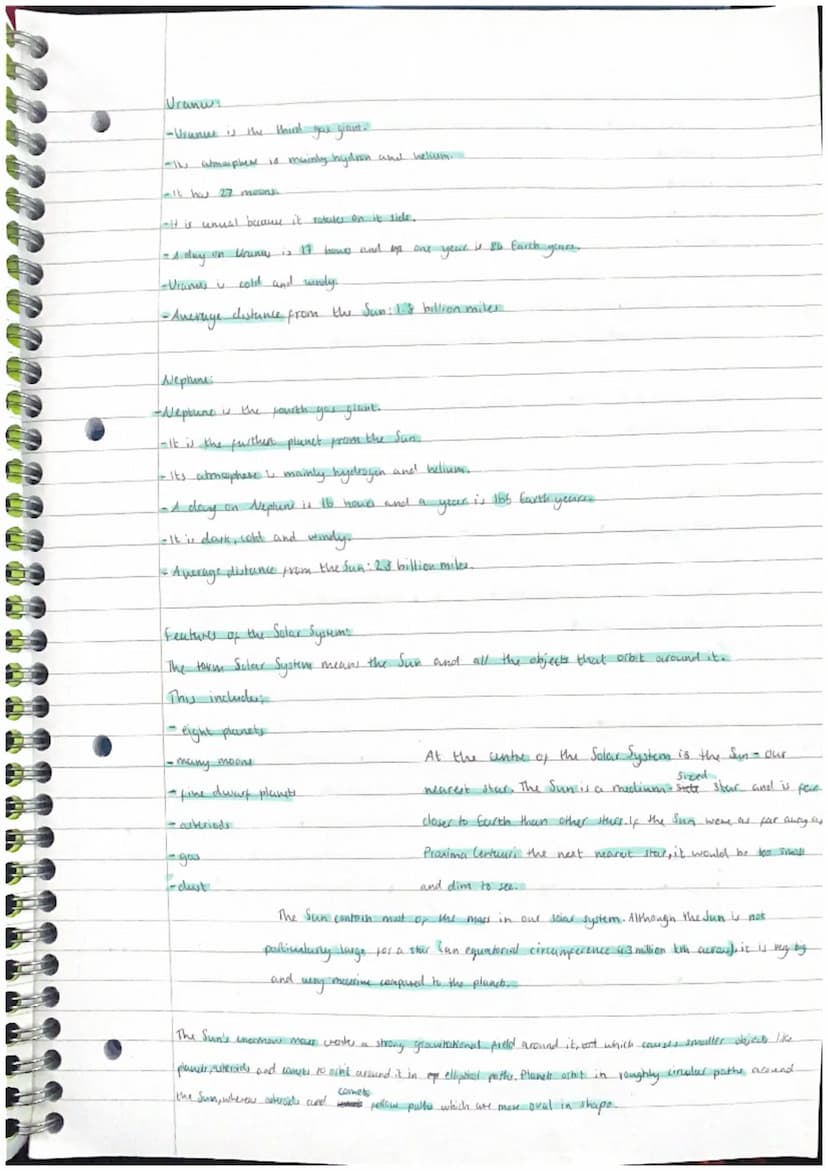 Uranus:
-Uranus is the third gas giant.
-Its atmosphere is mainly hydron and helium.
-It has 27 moons.
-It is unual because it rotates on it side.
-A day on Uranus is 17 hours and one year is 84 Earth years.
-Uranus is cold and windy.
-Average distance from the Sun: 1.8 billion miles
Neptune:
-Neptune is the fourth gas giant.
-It is the furthest planet from the Sun.
-Its atmosphere is mainly hydrogen and helium.
-A day on Neptune is 16 hours and a year is 165 Earth years.
-It is dark, cold and windy.
-Average distance from the Sun: 2.8 billion miles.
Features of the Solar System:
The term Solar System means the Sun and all the objects that orbit around it.
This includes:
- eight planets
- many moons
- five dwarf planets
- asteriods
- gas
- dust
At the centre of the Solar System is the Sun - our
nearest star. The Sun is a medium-sized star and is far
closer to Earth than other stars. If the Sun were as far away as
Proxima Centauri the next nearest star, it would be too small
and dim to see.
The Sun contain most of the mass in our solar system. Although the Sun is not
particularly large for a star (an equatorial circumference 4.3 million km across), it is very big
and very massive compared to the planets.
The Sun's enormous mass creates a strong gravitational field around it, which causes smaller objects like
planets, asteroids and comets to orbit around it in elliptical paths. Planets orbit in roughly circular paths around
the Sun, whereas asteroids and comets follow paths which are more oval in shape.